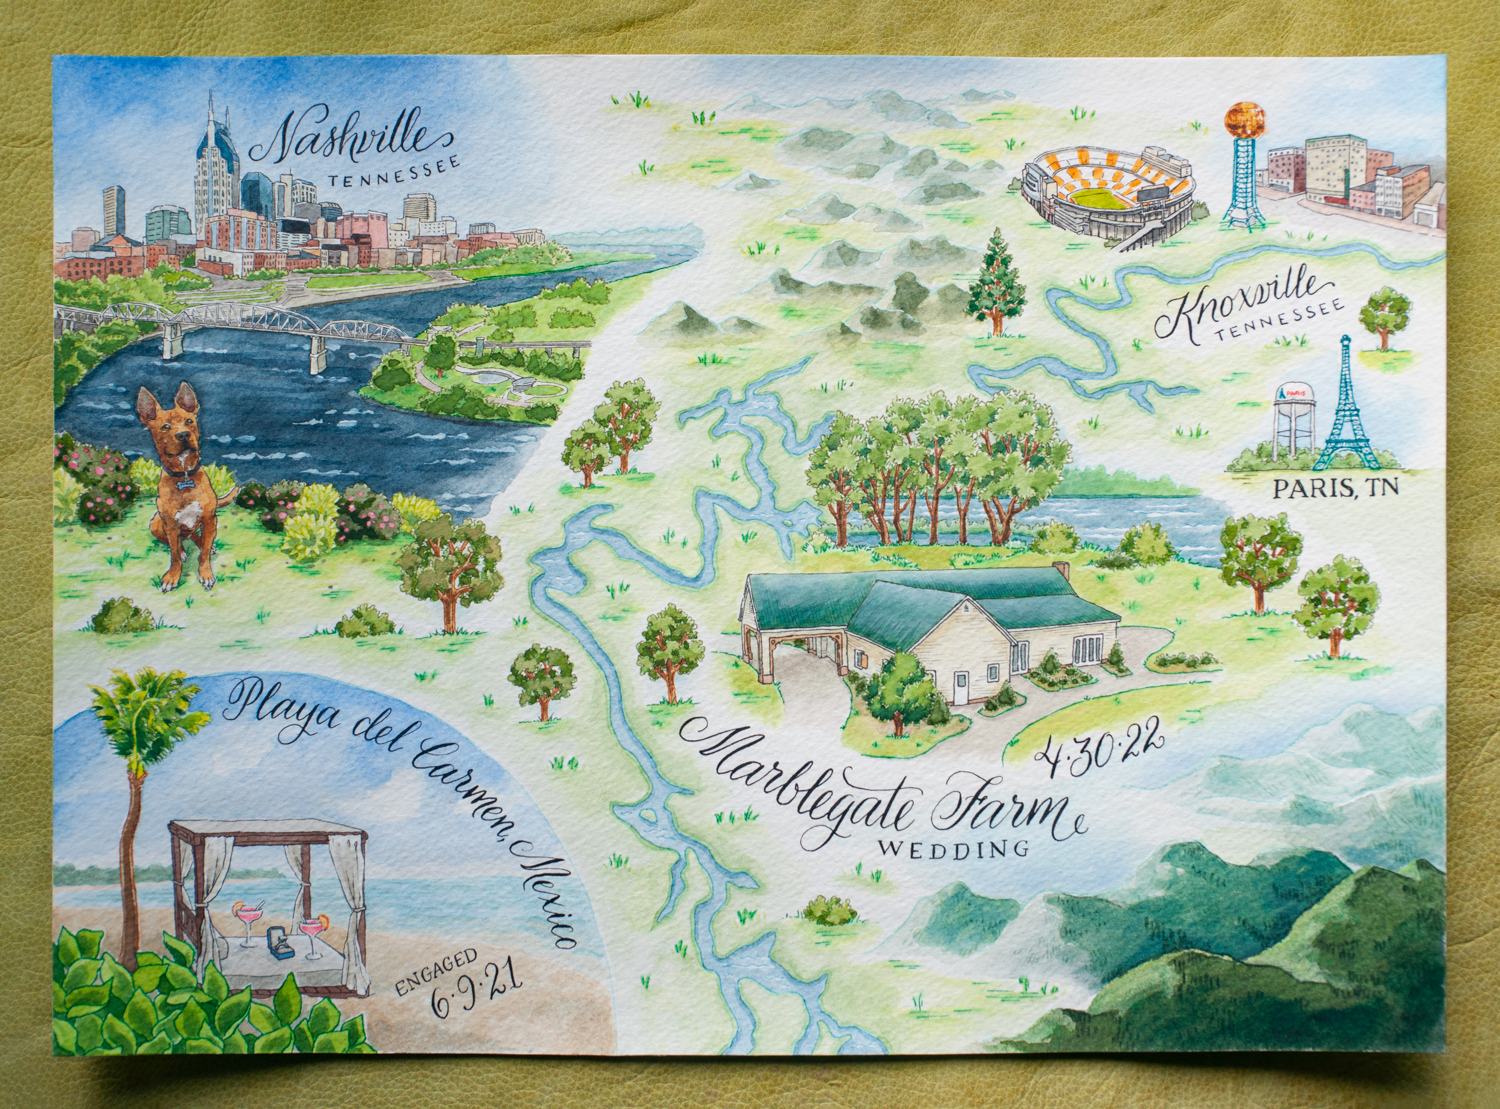 Nashville
TENNESSEE
Knoxville
TENNESSEE
PARIS
PARIS, TN
Marblegate Farm
WEDDING
4.30.22
Playa del Carmen, Mexico
ENGAGED
6.9.21